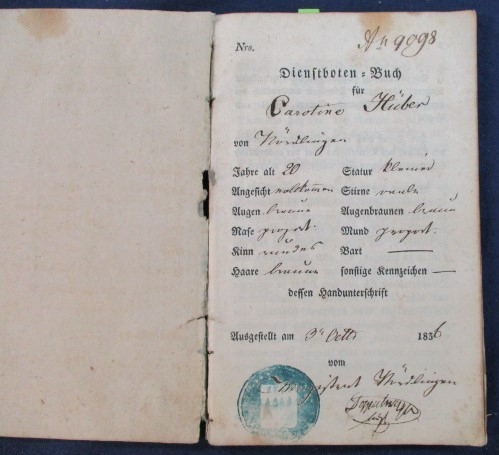 Nro. 9098
Dienstboten=Buch
für
Caroline Huber
von Nördlingen
Jahre alt 20 Statur kleiner
Angesicht vollkommen Stirne
Augen braun Augenbraunen braun
Nase proport. Mund proport.
Kinn rundes Bart —
Haare braun sonstige Kennzeichen —
dessen Handunterschrift
Ausgestellt am 3n Octb 1836
vom
Magistrat Nördlingen